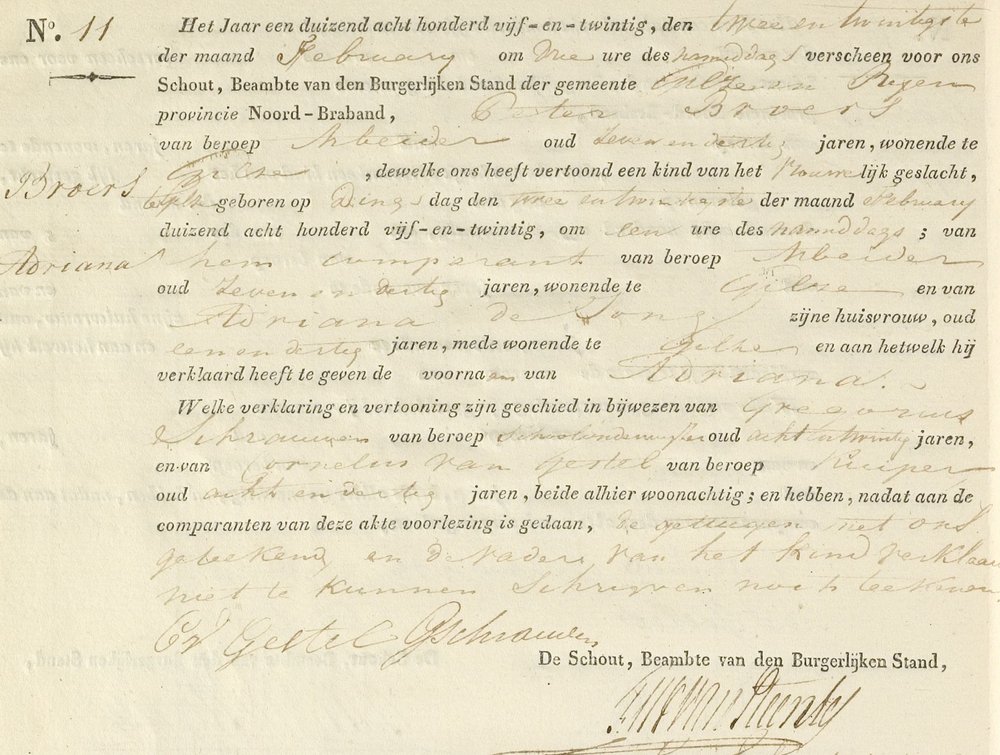 No. 11
Het Jaar een duizend acht honderd vijf-en-twintig, den twee en twintigste
der maand February om drie ure des namiddags verscheen voor ons
Schout, Beambte van den Burgerlijken Stand der gemeente Gilze en Reijen
provincie Noord-Braband, Peter Broers
van beroep Arbeider oud zeven en dertig jaren, wonende te
Broers Gilze, dewelke ons heeft vertoond een kind van het Vrouwelijk geslacht,
geboren op Dingsdag den twee en twintigste der maand February
duizend acht honderd vijf-en-twintig, om een ure des namiddags; van
Adriana hem comparant van beroep Arbeider
oud zeven en dertig jaren, wonende te Gilze en van
Adriana de Jong zijne huisvrouw, oud
een en dertig jaren, mede wonende te Gilze en aan hetwelk hij
verklaard heeft te geven de voornaam van Adriana.
Welke verklaring en vertooning zijn geschied in bijwezen van Gregorius
Schrauwen van beroep schoolondermeester oud acht en twintig jaren,
en van Cornelis van Gestel van beroep Kuiper
oud acht en dertig jaren, beide alhier woonachtig; en hebben, nadat aan de
comparanten van deze akte voorlezing is gedaan, de getuigen met ons
geteekend en de vader van het kind verklaard
niet te kunnen schrijven noch teekenen.
C V Gestel G Schrauwen
De Schout, Beambte van den Burgerlijken Stand,